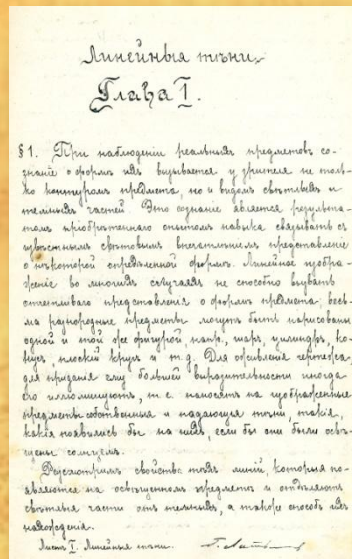 Линейныя тѣни.
Глава I.
§ 1. При наблюденіи реальныхъ предметовъ со-
знаніе о формѣ ихъ вызывается у зрителя не толь-
ко контуромъ предмета, но и видомъ свѣтлыхъ и
темныхъ частей. Это сознаніе является результа-
томъ пріобрѣтеннаго опытомъ навыка связывать съ
извѣстнымъ свѣтовымъ впечатлѣніемъ представленіе
о нѣкоторой опредѣленной формѣ. Линейное изобра-
женіе во многихъ случаяхъ не способно вызвать
отчетливаго представленія о формѣ предмета: весь-
ма разнородные предметы могутъ быть нарисованы
одной и той же фигурой, напр. шаръ, цилиндръ, ко-
нусъ, плоскій кругъ и т.д. Для оживленія чертежа,
для приданія ему большей выразительности иногда
его иллюминуютъ, т.е. наносятъ на изображенные
предметы собственныя и падающія тѣни, такія,
какія появились бы на нихъ, если бы они были освѣ-
щены солнцемъ.
Разсмотримъ свойства тѣхъ линій, которыя по-
являются на освѣщенномъ предметѣ и отдѣляютъ
свѣтлыя части отъ темныхъ, а также способъ ихъ
нахожденія.
Листъ I. Линейныя тѣни.